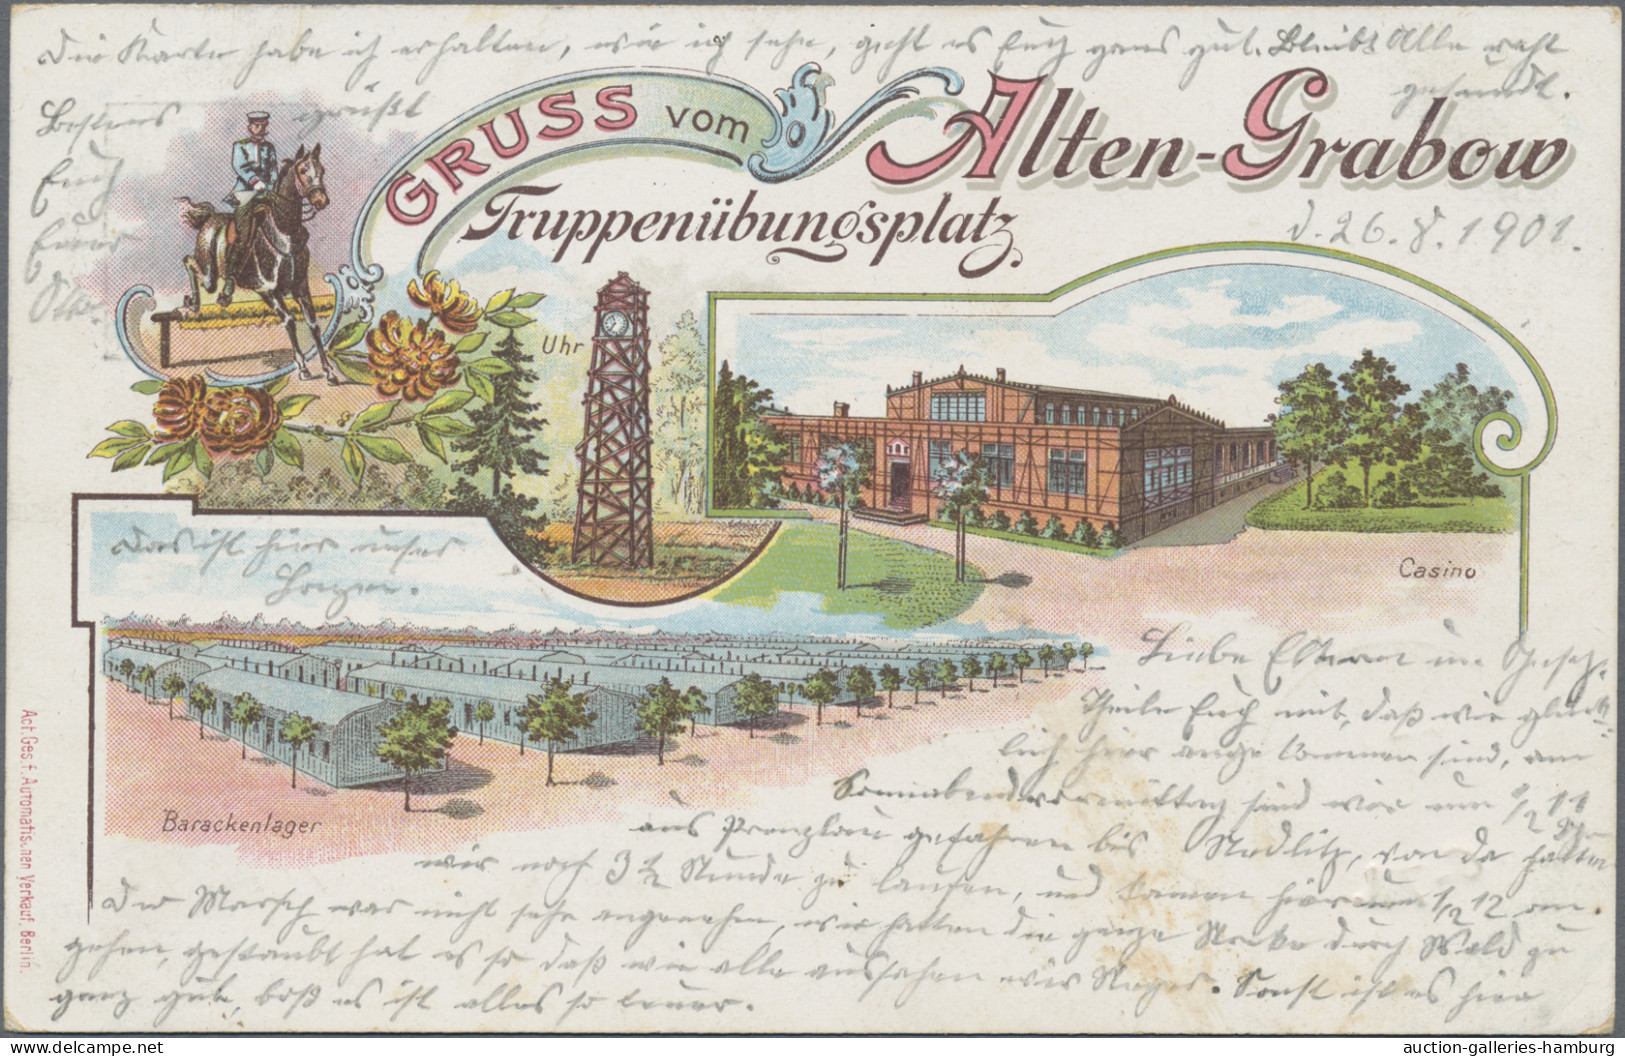 Die Karte habe ich erhalten, wie ich sehe, geht es Euch ganz gut. Bleibt Alle recht
gesund.
Bestens grüßt
Euch
Euer
Otto.
GRUSS vom Alten-Grabow
Truppenübungsplatz.
d. 26. 8. 1901.
Uhr
Casino
Das ist hier unser
Lager.
Barackenlager
Liebe Eltern u. Gesch.
Theile Euch mit, daß wir glück-
lich hier angekommen sind, am
Sonnabendvormittag sind wir um 1/2 11
aus Prenzlau gefahren bis Nedlitz, von da hatten
wir noch 3 1/2 Stunde zu laufen, und kamen hier um 1/2 12 an.
Der Marsch war nicht sehr angenehm, wir hatten die ganze Strecke durch Wald zu
gehen, gestaubt hat es so daß wir alle aussahen wie Neger. Sonst ist es hier
ganz gut, bloß es ist alles so teuer.
Act. Ges. f. Automatischen Verkauf. Berlin.
auction-galleries-hamburg